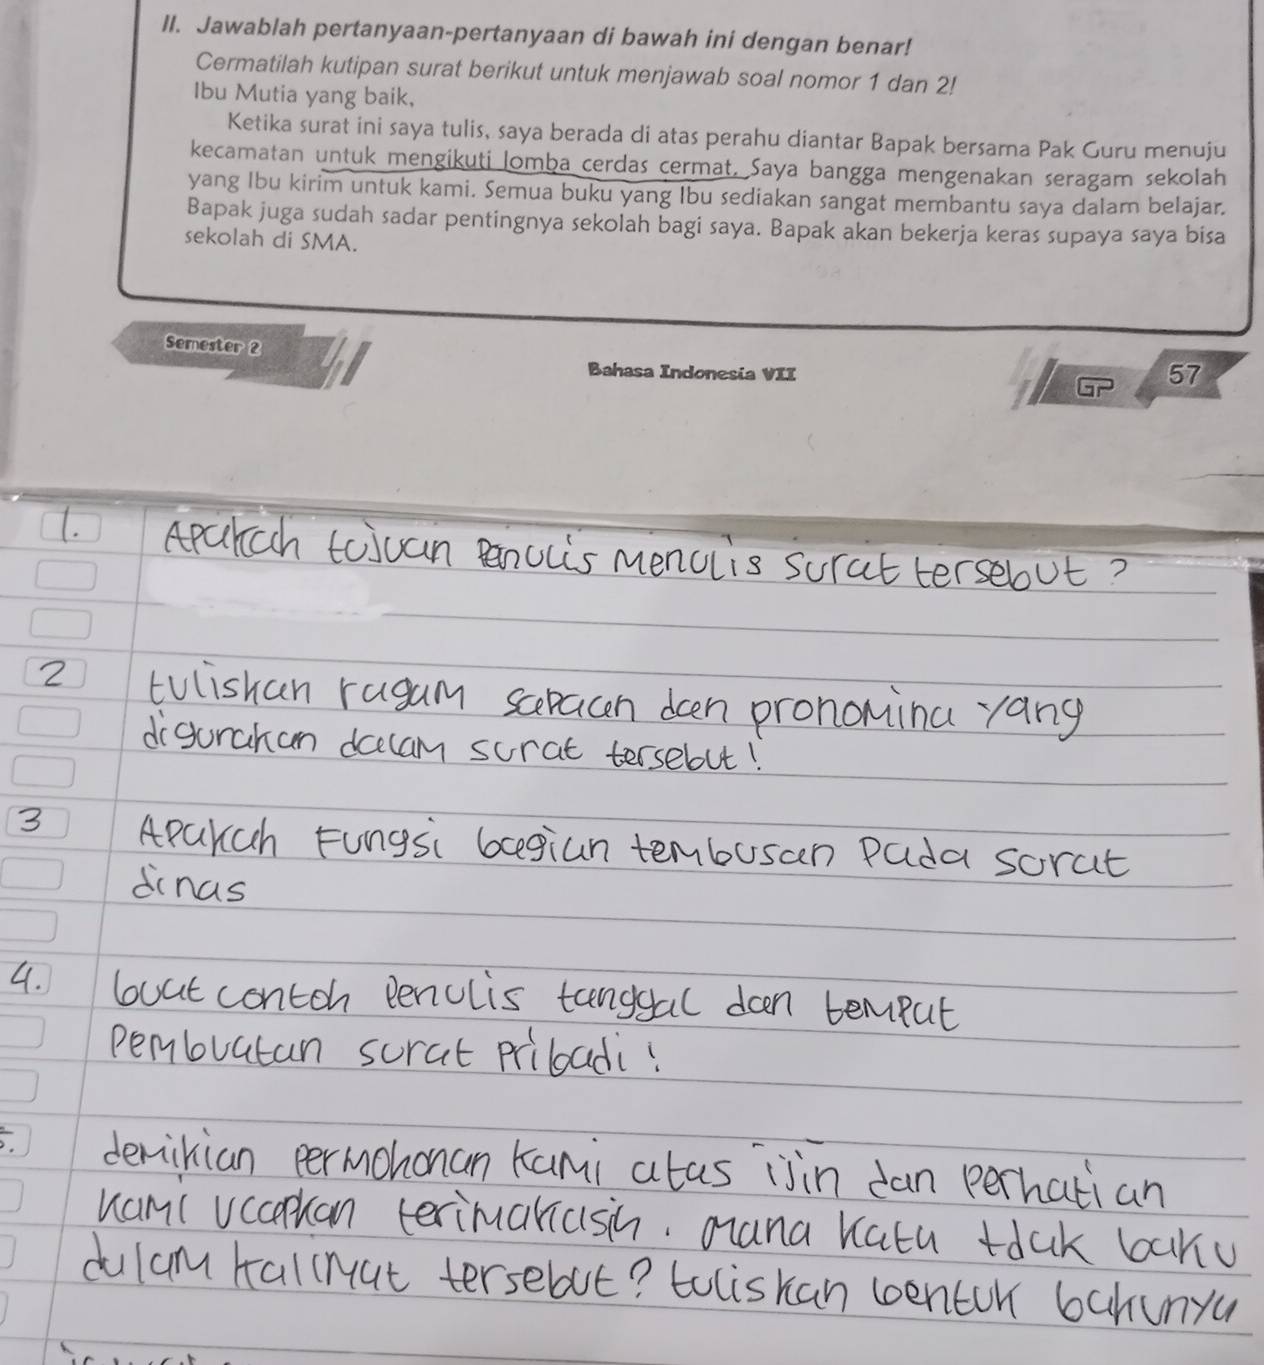 II. Jawablah pertanyaan-pertanyaan di bawah ini dengan benar!
Cermatilah kutipan surat berikut untuk menjawab soal nomor 1 dan 2!
Ibu Mutia yang baik,
Ketika surat ini saya tulis, saya berada di atas perahu diantar Bapak bersama Pak Guru menuju
kecamatan untuk mengikuti lomba cerdas cermat. Saya bangga mengenakan seragam sekolah
yang Ibu kirim untuk kami. Semua buku yang Ibu sediakan sangat membantu saya dalam belajar.
Bapak juga sudah sadar pentingnya sekolah bagi saya. Bapak akan bekerja keras supaya saya bisa
sekolah di SMA.
Semester 2
Bahasa Indonesia VII
GP 57
1. Apakah tujuan Penulis Menulis surat tersebut?
2 tuliskan ragam sapaan dan pronomina yang
digunakan dalam surat tersebut!
3 Apakah Fungsi bagian tembusan pada surat
dinas
4. buat contoh penulis tanggal dan tempat
pembuatan surat pribadi!
5. demikian permohonan kami atas ijin dan perhatian
kami ucapkan terimakasih. Mana kata tdak baku
dalam kalimat tersebut? tuliskan bentuk bakunya